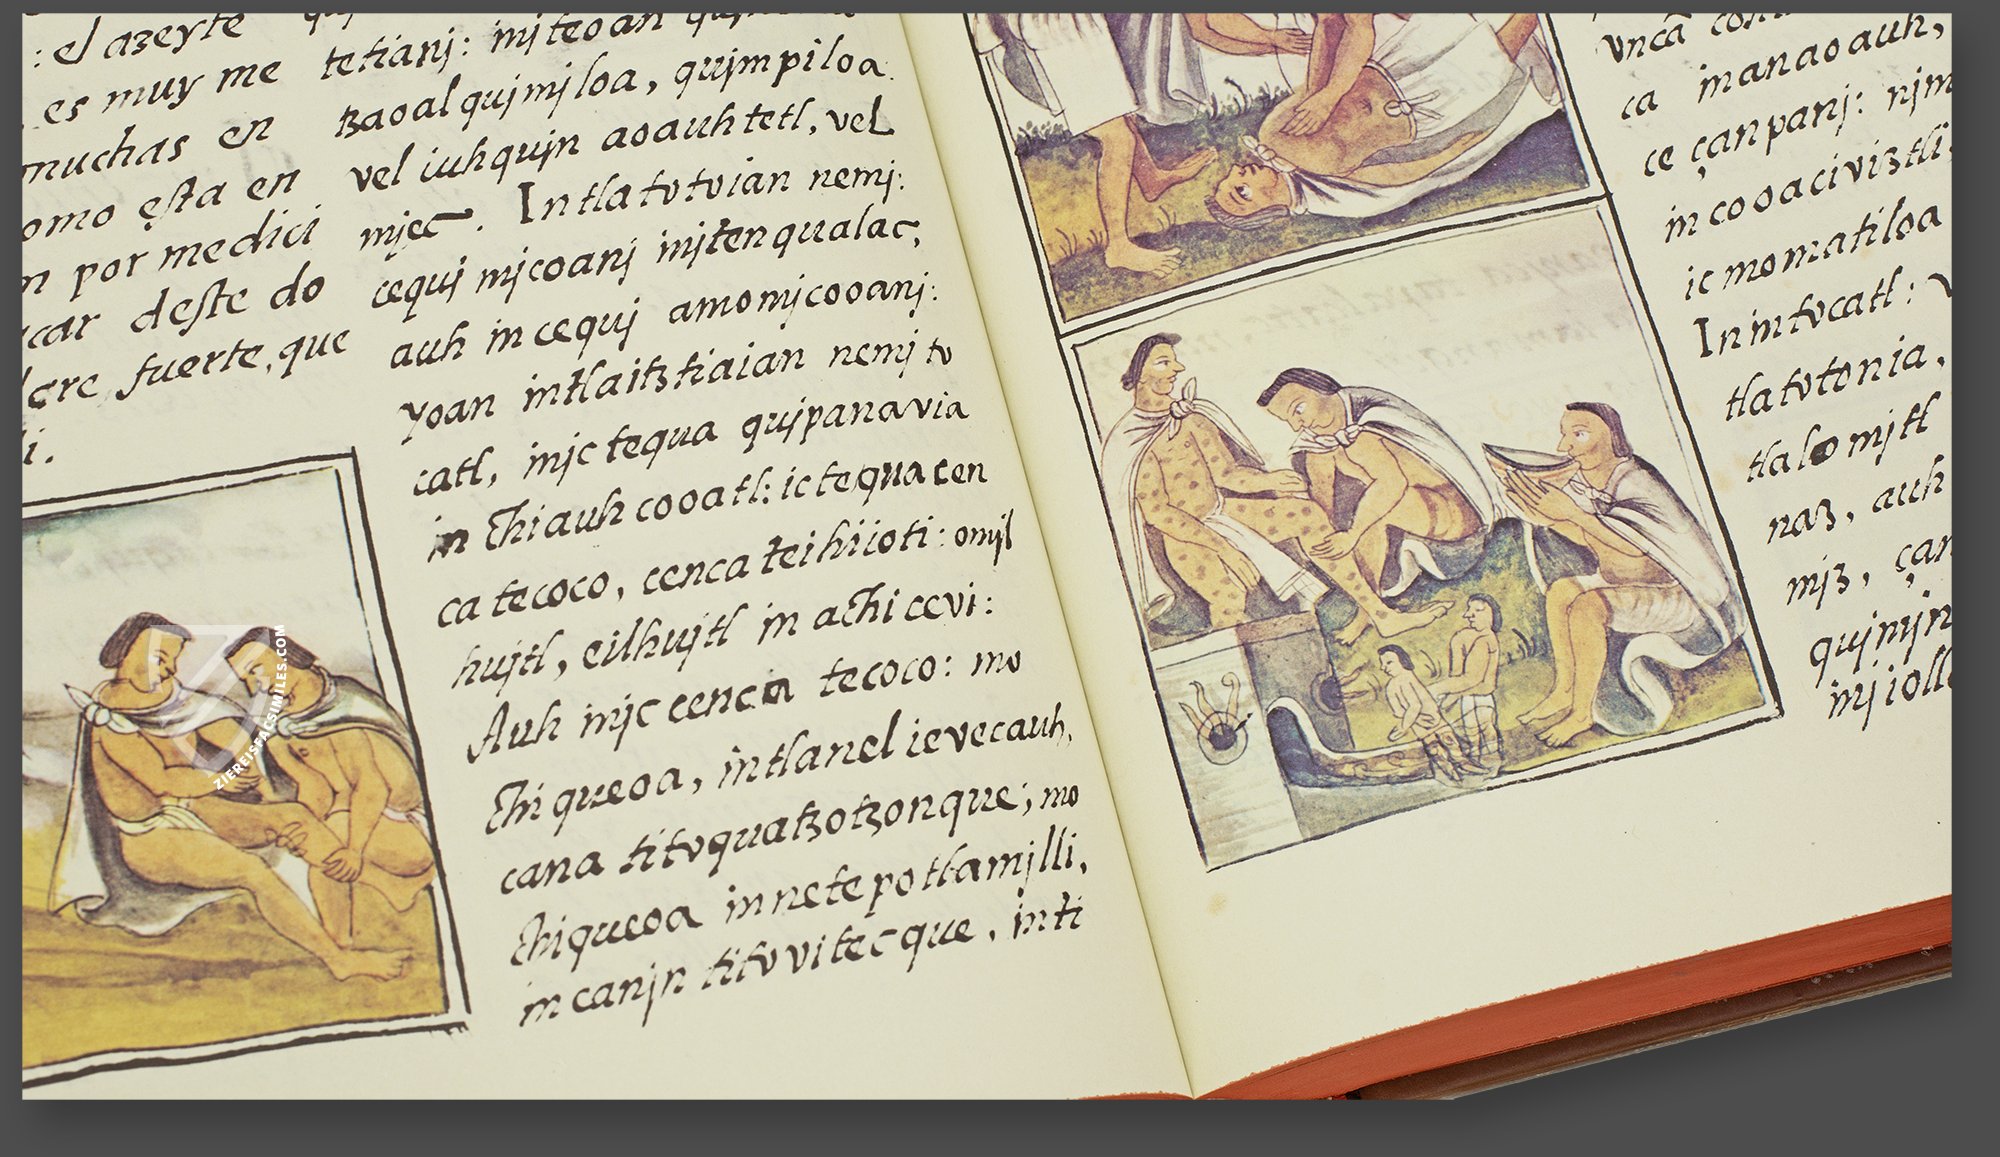 : el azeyte
es muy me
muchas en
omo esta en
n por medici
car deste do
lore fuerte, que
li.
tetianj: injteoan
tzaoalqujmjloa, qujmpiloa.
vel iuhqujn aoauhtetl, vel
mjec. In tlatotoian nemj:
cequj mjcoanj injtenqualac,
auh in cequj amomjcooanj:
yoan intlaitztiaian nemj to
catl, injc tequa qujpanavia
in chiauhcooatl: ic tequa cen
ca tecoco, cenca teihiioti: omjl
hujtl, eilhujtl in achi cevi:
Auh injc cenca tecoco: mo
chiqueoa, intlanel ievecauh,
cana titoquatzotzonque; mo
chiqueoa innetepotlamjlli,
in canjn titovitecque, inti
vnca
ca inanaoauh,
ce çan panj: njm
in cooaciviztli,
ic momatiloa
In intocatl:
tlatotonia,
tlalomjtl
naz, auh
mjz, çan
qujnjn
inj ioll
ZIEREISFACSIMILES.COM